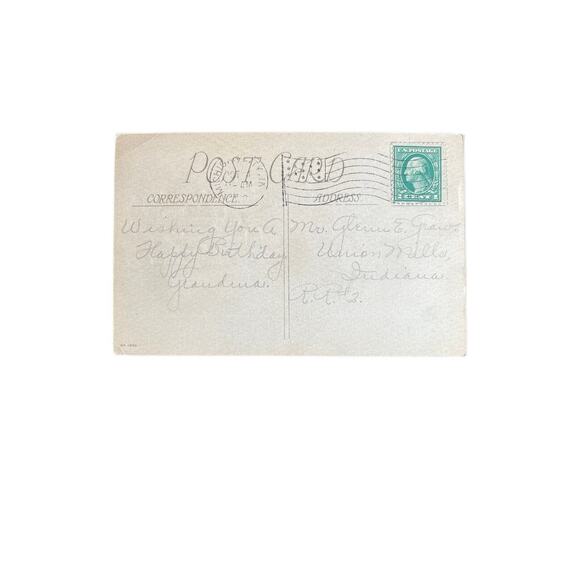 POST CARD
CORRESPONDENCE
ADDRESS
U.S. POSTAGE
CENT
Wishing You A
Happy Birthday
Grandma.
Mr. Glenn E.
Union Mills,
Indiana
R.R. 2.